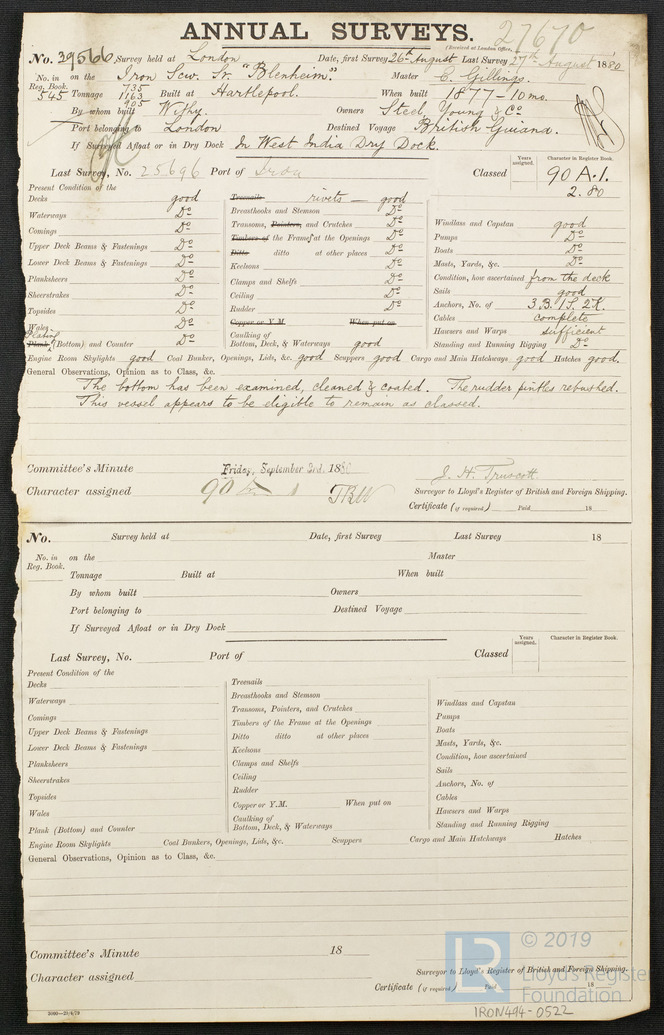 ANNUAL SURVEYS. 27670
(Received at London Office,
No. 39566 Survey held at London Date, first Survey 26th August Last Survey 27th August 1880
No. in Reg. Book. 545 on the Iron Scw. Sr. "Blenheim." Master C. Gillings.
Tonnage 735 1163 905 Built at Hartlepool. When built 1877 - 10 mo.
By whom built Withy. Owners Steel, Young & Co
Port belonging to London Destined Voyage British Guiana.
If Surveyed Afloat or in Dry Dock In West India Dry Dock.
Last Survey, No. 25696 Port of Classed Years assigned. Character in Register Book. 90 A.1. 2.80
Present Condition of the
Decks good
Waterways Do
Comings Do
Upper Deck Beams & Fastenings Do
Lower Deck Beams & Fastenings Do
Planksheers Do
Sheerstrakes Do
Topsides Do
Wales Do
Plank Plating (Bottom) and Counter Do
Treenails rivets good
Breasthooks and Stemson Do
Transoms, Pointers, and Crutches Do
Timbers of the Frame at the Openings Do
Ditto ditto at other places Do
Keelsons Do
Clamps and Shelfs Do
Ceiling Do
Rudder Do
Copper or Y.M. When put on
Caulking of
Bottom, Deck, & Waterways good
Windlass and Capstan good
Pumps Do
Boats Do
Masts, Yards, &c. Do
Condition, how ascertained from the deck
Sails good
Anchors, No. of 3 B. 1 S. 2 K.
Cables complete
Hawsers and Warps sufficient
Standing and Running Rigging Do
Engine Room Skylights good Coal Bunker, Openings, Lids, &c. good Scuppers good Cargo and Main Hatchways good Hatches good.
General Observations, Opinion as to Class, &c.
The bottom has been examined, cleaned & coated. The rudder pintles rebushed.
This vessel appears to be eligible to remain as classed.
Committee's Minute Friday, September 3rd, 1880
J. H. Truscott.
Character assigned 90 A 1 TBW
Surveyor to Lloyd's Register of British and Foreign Shipping.
Certificate (if required) Paid 18
No. Survey held at Date, first Survey Last Survey 18
No. in Reg. Book. on the Master
Tonnage Built at When built
By whom built Owners
Port belonging to Destined Voyage
If Surveyed Afloat or in Dry Dock
Last Survey, No. Port of Classed Years assigned. Character in Register Book.
Present Condition of the
Decks
Waterways
Comings
Upper Deck Beams & Fastenings
Lower Deck Beams & Fastenings
Planksheers
Sheerstrakes
Topsides
Wales
Plank (Bottom) and Counter
Treenails
Breasthooks and Stemson
Transoms, Pointers, and Crutches
Timbers of the Frame at the Openings
Ditto ditto at other places
Keelsons
Clamps and Shelfs
Ceiling
Rudder
Copper or Y.M. When put on
Caulking of
Bottom, Deck, & Waterways
Windlass and Capstan
Pumps
Boats
Masts, Yards, &c.
Condition, how ascertained
Sails
Anchors, No. of
Cables
Hawsers and Warps
Standing and Running Rigging
Engine Room Skylights Coal Bunkers, Openings, Lids, &c. Scuppers Cargo and Main Hatchways Hatches
General Observations, Opinion as to Class, &c.
Committee's Minute 18
Character assigned
Surveyor to Lloyd's Register of British and Foreign Shipping.
Certificate (if required) Paid 18
LR © 2019
Lloyd's Register
Foundation
IRON494-0522